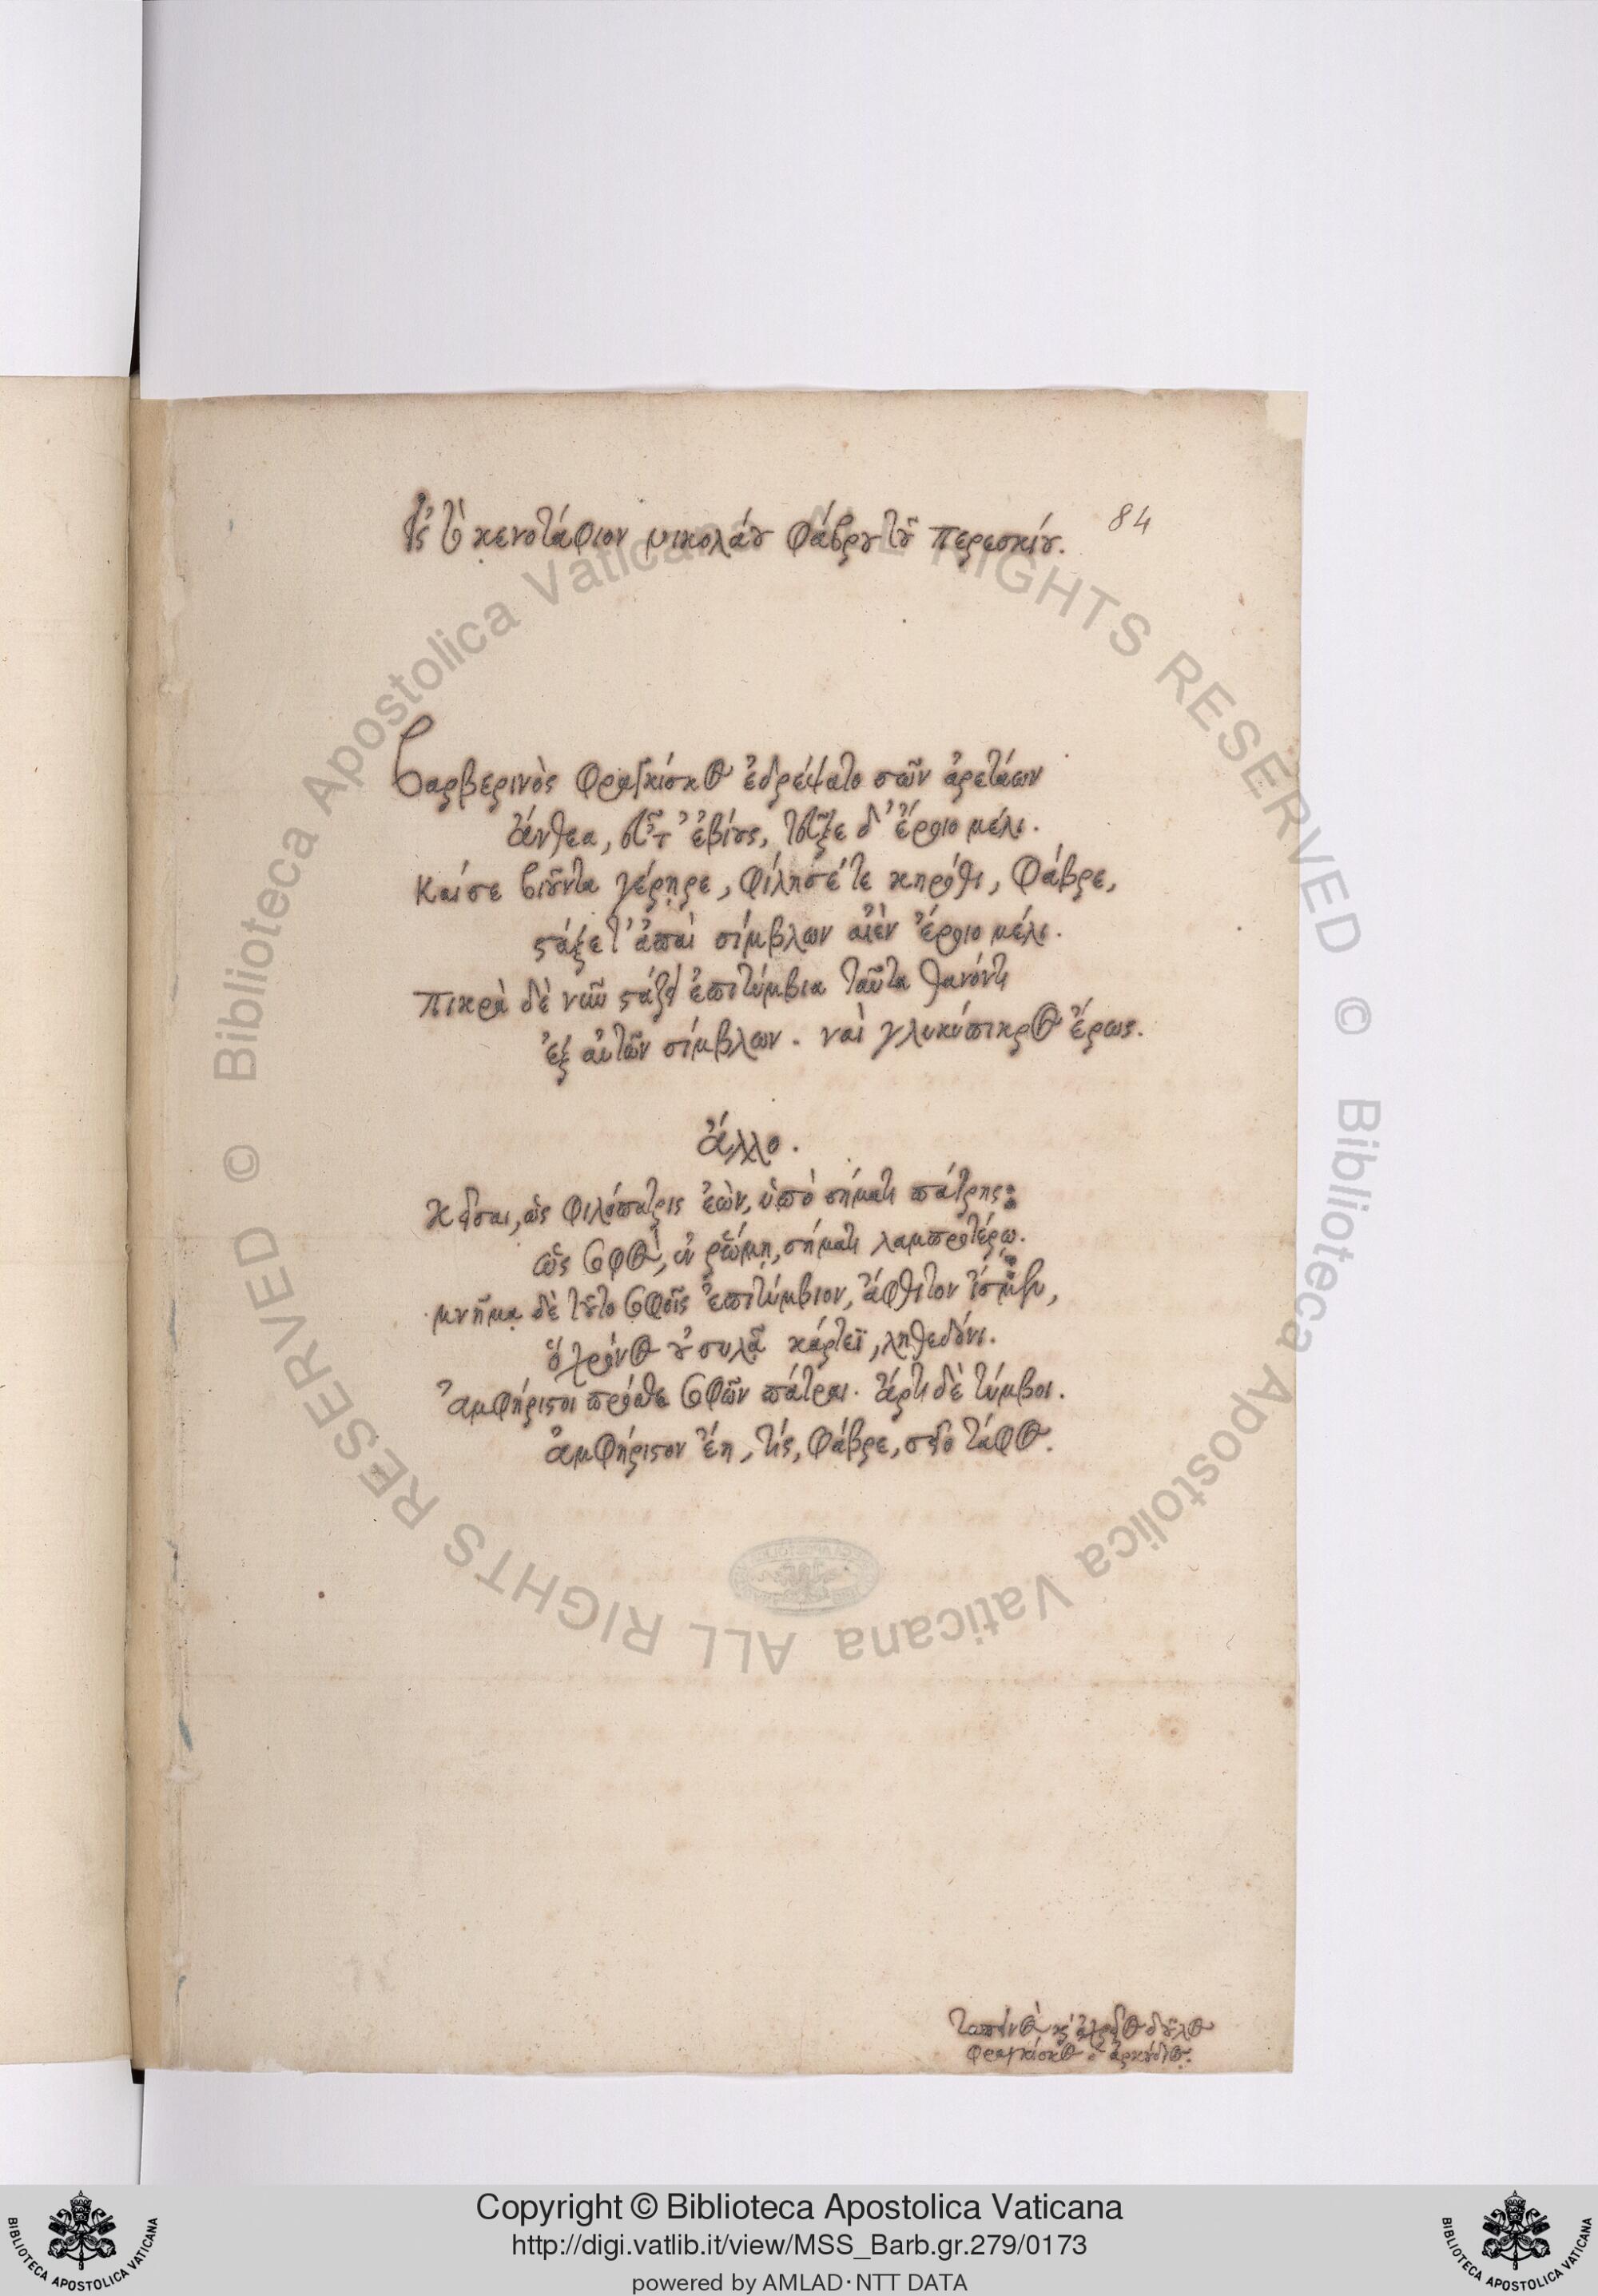 84
Εἰς τὸ κενοτάφιον νικολάου Φάβρου τοῦ Περεσκίου.
Βαρβερινὸς Φραγκίσκος ἐδρέψατο σῶν ἀρετάων
ἄνθεα, ἐβίους, δ' ἔρωιο μέλι.
Καί σε βιοῦντα γέρηρε, Φίλησέ τε κηρόθι, Φάβρε,
στάξε τ' ἀπαὶ σίμβλων αἰὲν ἔρωιο μέλι.
Πικρὰ δὲ νῦν στάζει ἐπιτύμβια ταῦτα θανόντι
ἐξ αὐτῶν σίμβλων. ναὶ γλυκύπικρος ἔρως.
ἄλλο.
κεῖσαι, ὡς φιλόπατρις ἐὼν, ὑπὸ σήματι πάτρης:
ὡς σοφὸς, ἐν ῥώμῃ, σήματι λαμπροτέρῳ.
μνῆμα δὲ τοῦτο σοφοῖς ἐπιτύμβιον, ἄφθιτον
ὃ χρόνος οὐ συλᾷ κάρτεϊ, ληθεδόνι.
Ἀμφήριστοι πρόσθε σοφῶν πάτραι. ἄρτι δὲ τύμβοι.
ἀμφήριστον ἔῃ, τίς, Φάβρε, σεῖο τάφος.
ταπεινὸς καὶ ἀχρεῖος δοῦλος
φραγκίσκος ὁ ἀρκούδιος.
Copyright © Biblioteca Apostolica Vaticana
http://digi.vatlib.it/view/MSS_Barb.gr.279/0173
powered by AMLAD·NTT DATA
BIBLIOTECA APOSTOLICA VATICANA
BIBLIOTECA APOSTOLICA VATICANA
© Biblioteca Apostolica Vaticana ALL RIGHTS RESERVED © Biblioteca Apostolica Vaticana ALL RIGHTS RESERVED